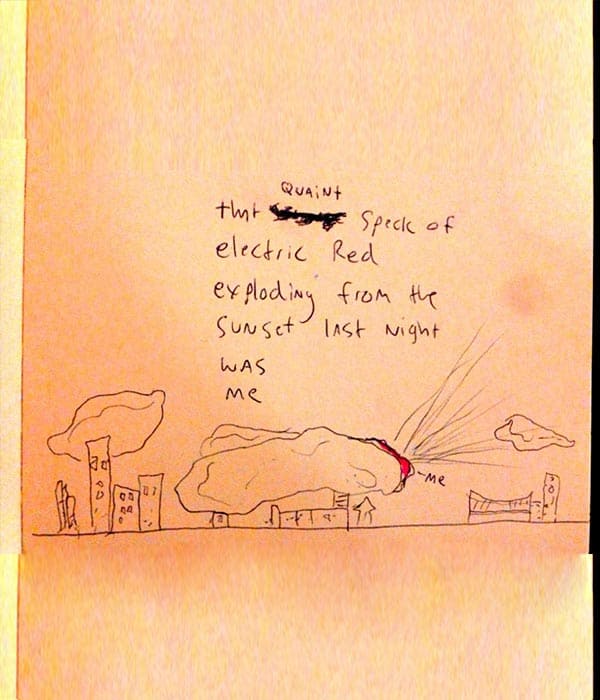 QUAINt
that Speck of
electric Red
exploding from the
Sunset last Night
WAS
Me
-Me